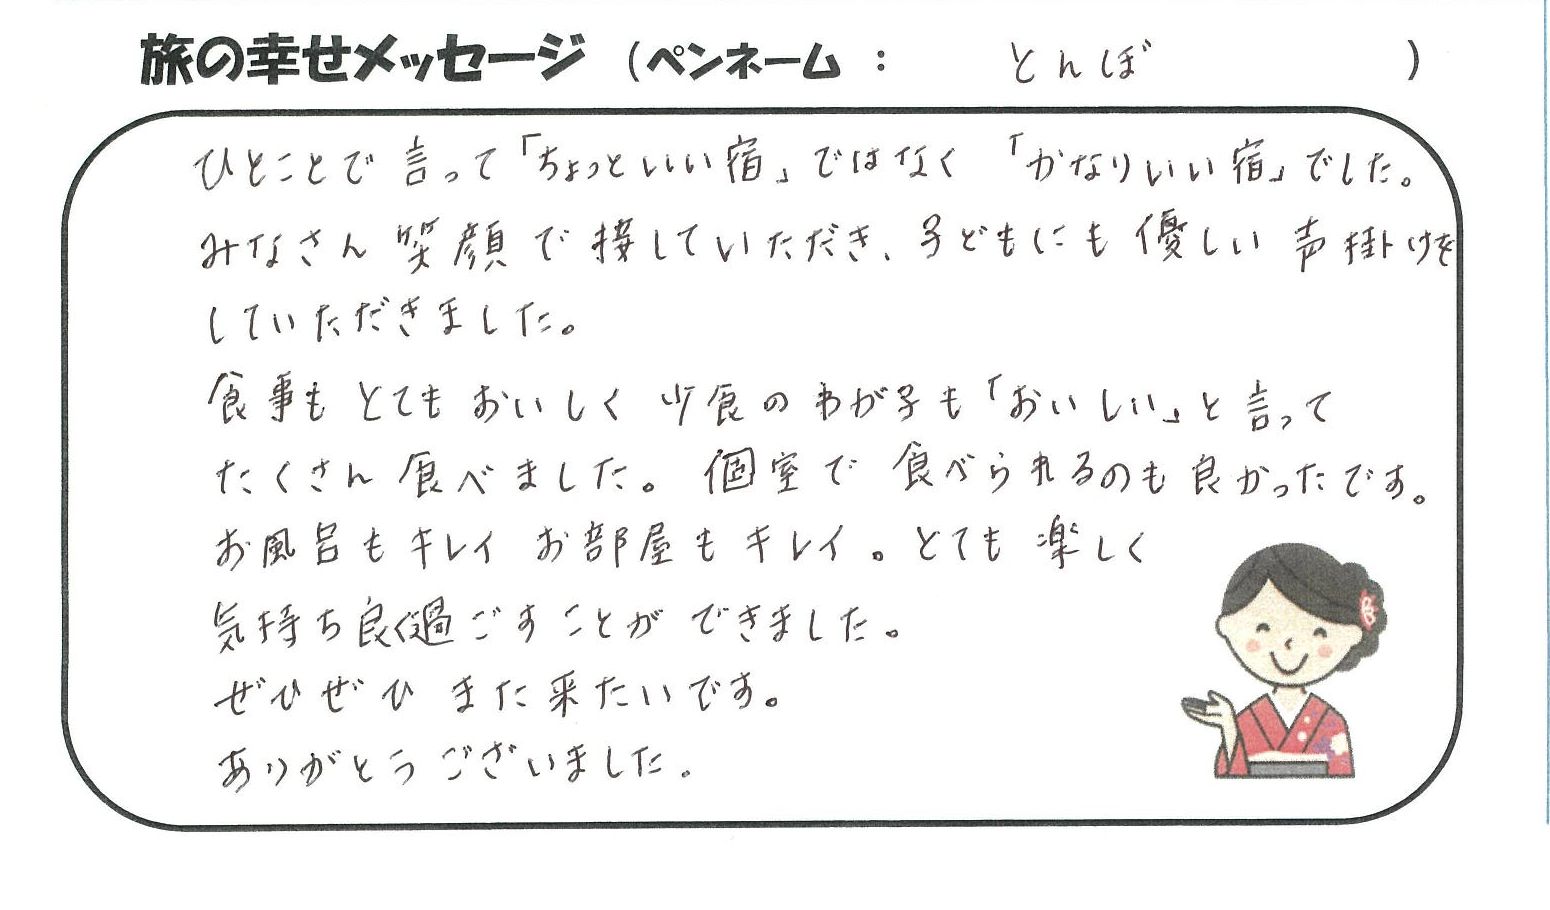 旅の幸せメッセージ（ペンネーム：とんぼ）
ひとことで言って「ちょっといいい宿」ではなく「かなりいい宿」でした。
みなさん笑顔で接していただき、子どもにも優しい声掛けを
していただきました。
食事もとてもおいしく少食のわが子も「おいしい」と言って
たくさん食べました。個室で食べられるのも良かったです。
お風呂もキレイお部屋もキレイ。とても楽しく
気持ち良く過ごすことができました。
ぜひぜひまた来たいです。
ありがとうございました。